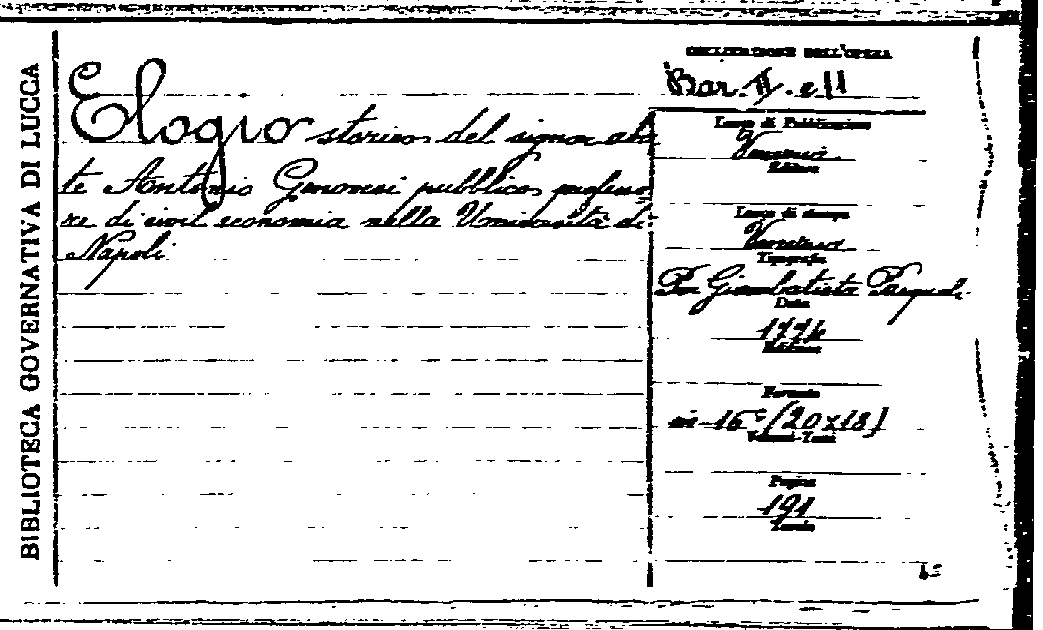 BIBLIOTECA GOVERNATIVA DI LUCCA
Elogio storico del signor aba
te Antonio Genovesi pubblico professo
re di civil economia nella Università di
Napoli
COLLOCAZIONE DELL'OPERA
Bar. II. e 11
Luogo di Pubblicazione
Venezia
Editore
Luogo di stampa
Venezia
Tipografia
Per Giambatista Pasquali
Data
1774
Edizione
Formato
in-16° (20x13)
Volumi-Tomi
Pagine
191
Tavole